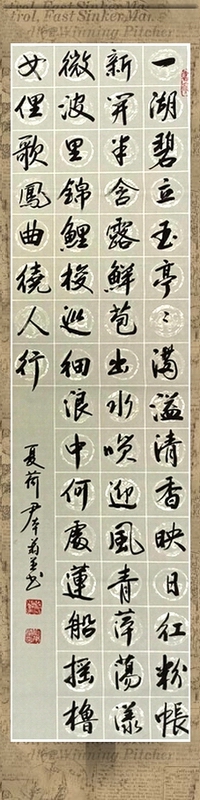 一湖碧立玉亭〻滿溢清香映日红粉帳
新開半含露鮮苞出水喚迎風青萍蕩漾
微波里錦鯉梭巡細浪中何處蓮船摇櫓
女俚歌鳳曲繞人行
夏荷 尹
trol, Fast Sinker Mar
Winning Pitcher